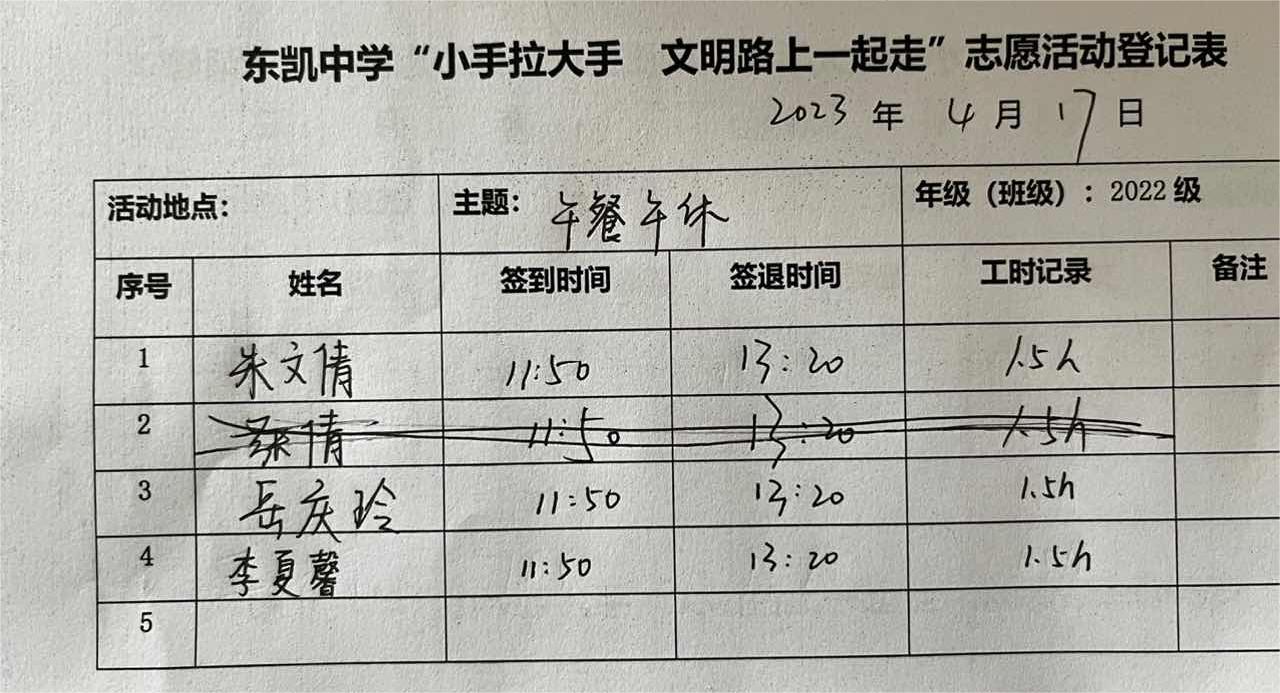 东凯中学“小手拉大手 文明路上一起走”志愿活动登记表
2023 年 4 月 17 日
活动地点： 主题：午餐午休 年级（班级）：2022 级
序号 姓名 签到时间 签退时间 工时记录 备注
1 朱文倩 11:50 13:20 1.5h
2 倩 11:50 13:20 1.5h
3 岳庆玲 11:50 13:20 1.5h
4 李夏馨 11:50 13:20 1.5h
5